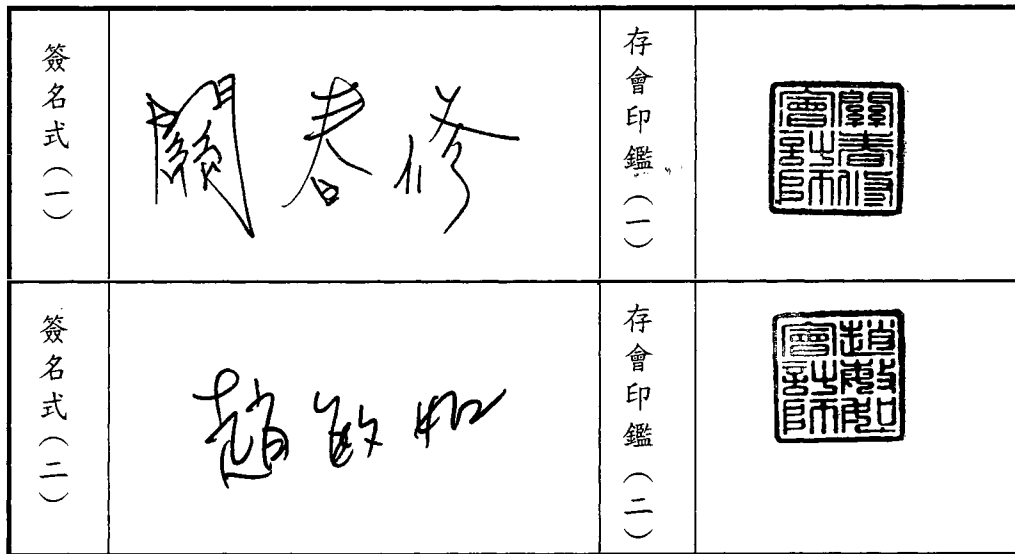 簽名式(一)
關春修
存會印鑑(一)
關春修
會計師
簽名式(二)
趙敏如
存會印鑑(二)
趙敏如
會計師